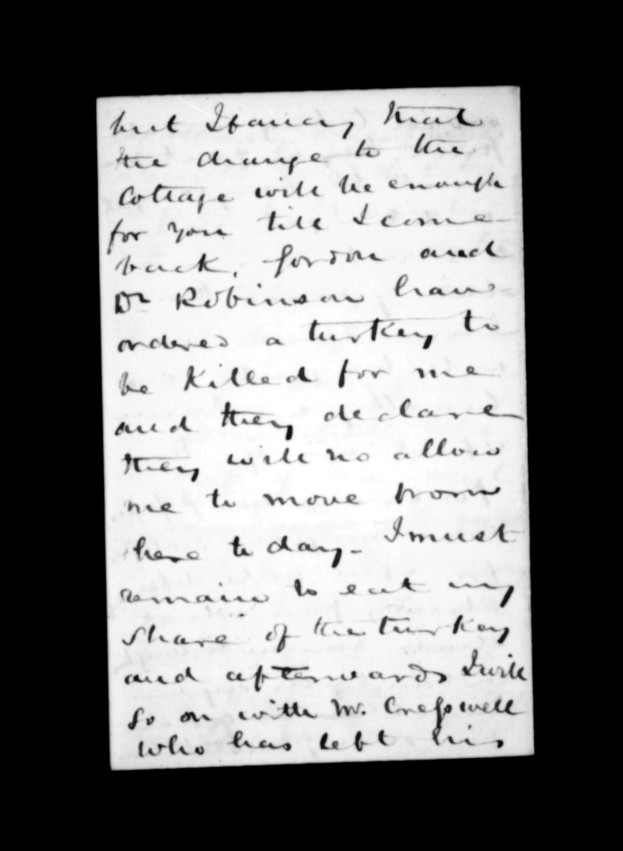 but I fancy that
the change to the
Cottage will be enough
for you till I come
back. Gordon and
Dr Robinson have
ordered a turkey to
be Killed for me
and they declare
they will no allow
me to move from
here to day - I must
remain to eat my
share of the turkey
and afterwards I will
go on with Mr. Cresswell
who has left his